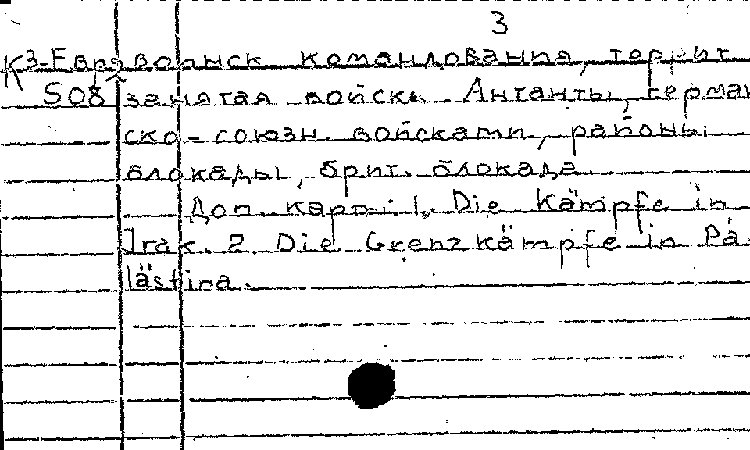 3
К3-Евра воинск. командования, террит.
S08 занятая войск. Антанты, герман
ско-союзн. войсками, районы
блокады, брит. блокада.
Доп. карты: 1. Die Kämpfe in
Irak. 2. Die Grenzkämpfe in Pa-
lästina.